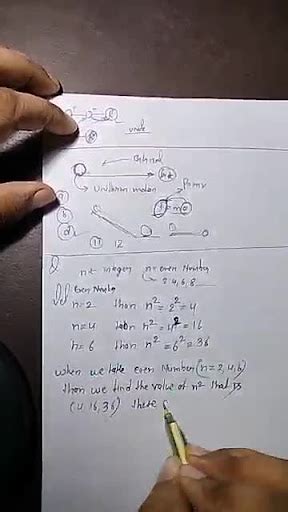 unde
uniform motion
Force
a
b
d
11 12
Q
n ≠ integer n = even Number
2, 4, 6, 8
Let Even Number
n=2 then n² = 2² = 4
n=4 then n² = 4² = 16
n=6 then n² = 6² = 36
when we take even Number (n = 2, 4, 6)
then we find the value of n² that is
(4, 16, 36) there